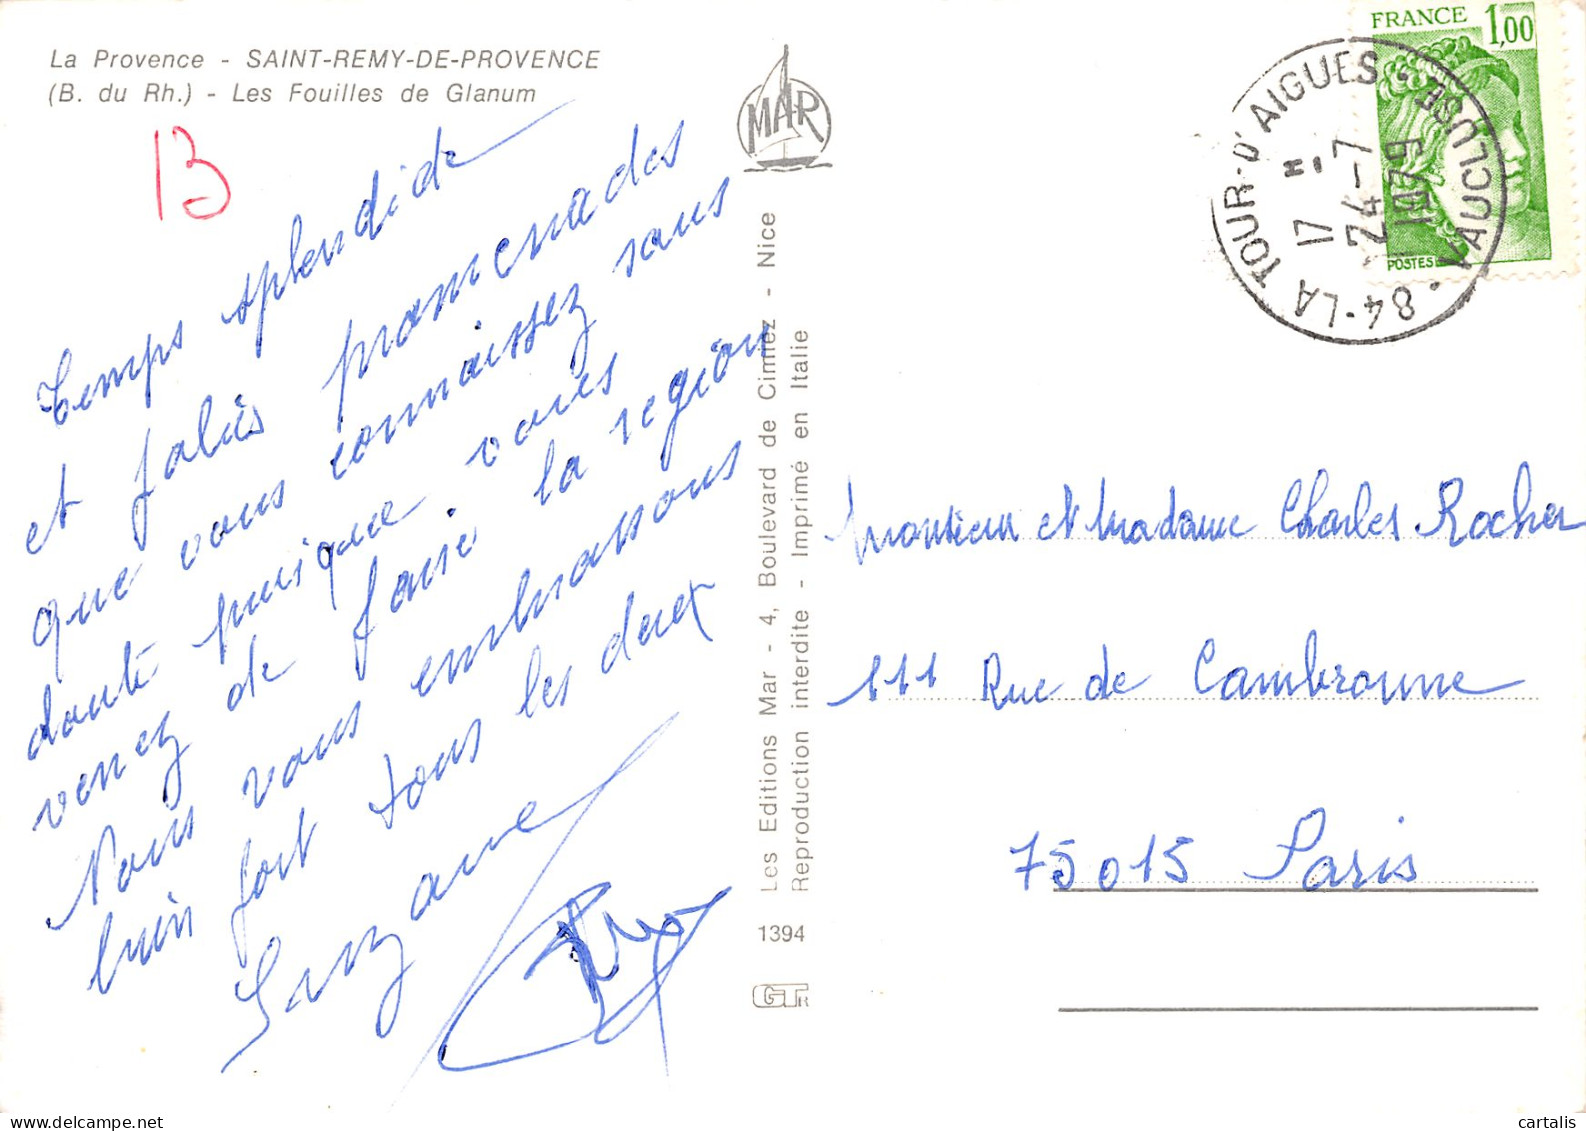 La Provence - SAINT-REMY-DE-PROVENCE
(B. du Rh.) - Les Fouilles de Glanum
13
Temps splendide
et jolies promenades
que vous connaissez sans
doute puisque vous
venez de faire la region
Nous vous embrassons
bien fort tous les deux
Suzanne
MAR
Les Editions Mar - 4, Boulevard de Cimiez - Nice
Reproduction interdite - Imprimé en Italie
1394
GTR
FRANCE 1,00
POSTES
84-LA TOUR-D'AIGUES • VAUCLUSE •
17 H
24-7
1979
Monsieur et Madame Charles Rocher
111 Rue de Cambronne
75015 Paris
cartalis